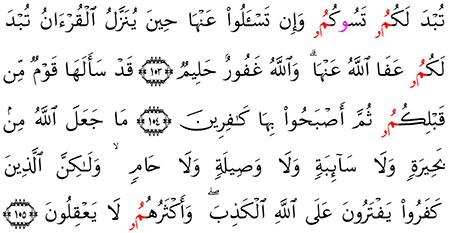 تُبْدَ لَكُمُۥ تَسُوكُمُۥ وَإِن تَسْـَٔلُوا۟ عَنْهَا حِينَ يُنَزَّلُ ٱلْقُرْءَانُ تُبْدَ
لَكُمُۥ عَفَا ٱللَّهُ عَنْهَا ۗ وَٱللَّهُ غَفُورٌ حَلِيمٌ ١٠٣ قَدْ سَأَلَهَا قَوْمٌ مِّن
قَبْلِكُمُۥ ثُمَّ أَصْبَحُوا۟ بِهَا كَـٰفِرِينَ ١٠٤ مَا جَعَلَ ٱللَّهُ مِنۢ
بَحِيرَةٍ وَلَا سَآئِبَةٍ وَلَا وَصِيلَةٍ وَلَا حَامٍ ۙ وَلَـٰكِنَّ ٱلَّذِينَ
كَفَرُوا۟ يَفْتَرُونَ عَلَى ٱللَّهِ ٱلْكَذِبَ ۖ وَأَكْثَرُهُمُۥ لَا يَعْقِلُونَ ١٠٥